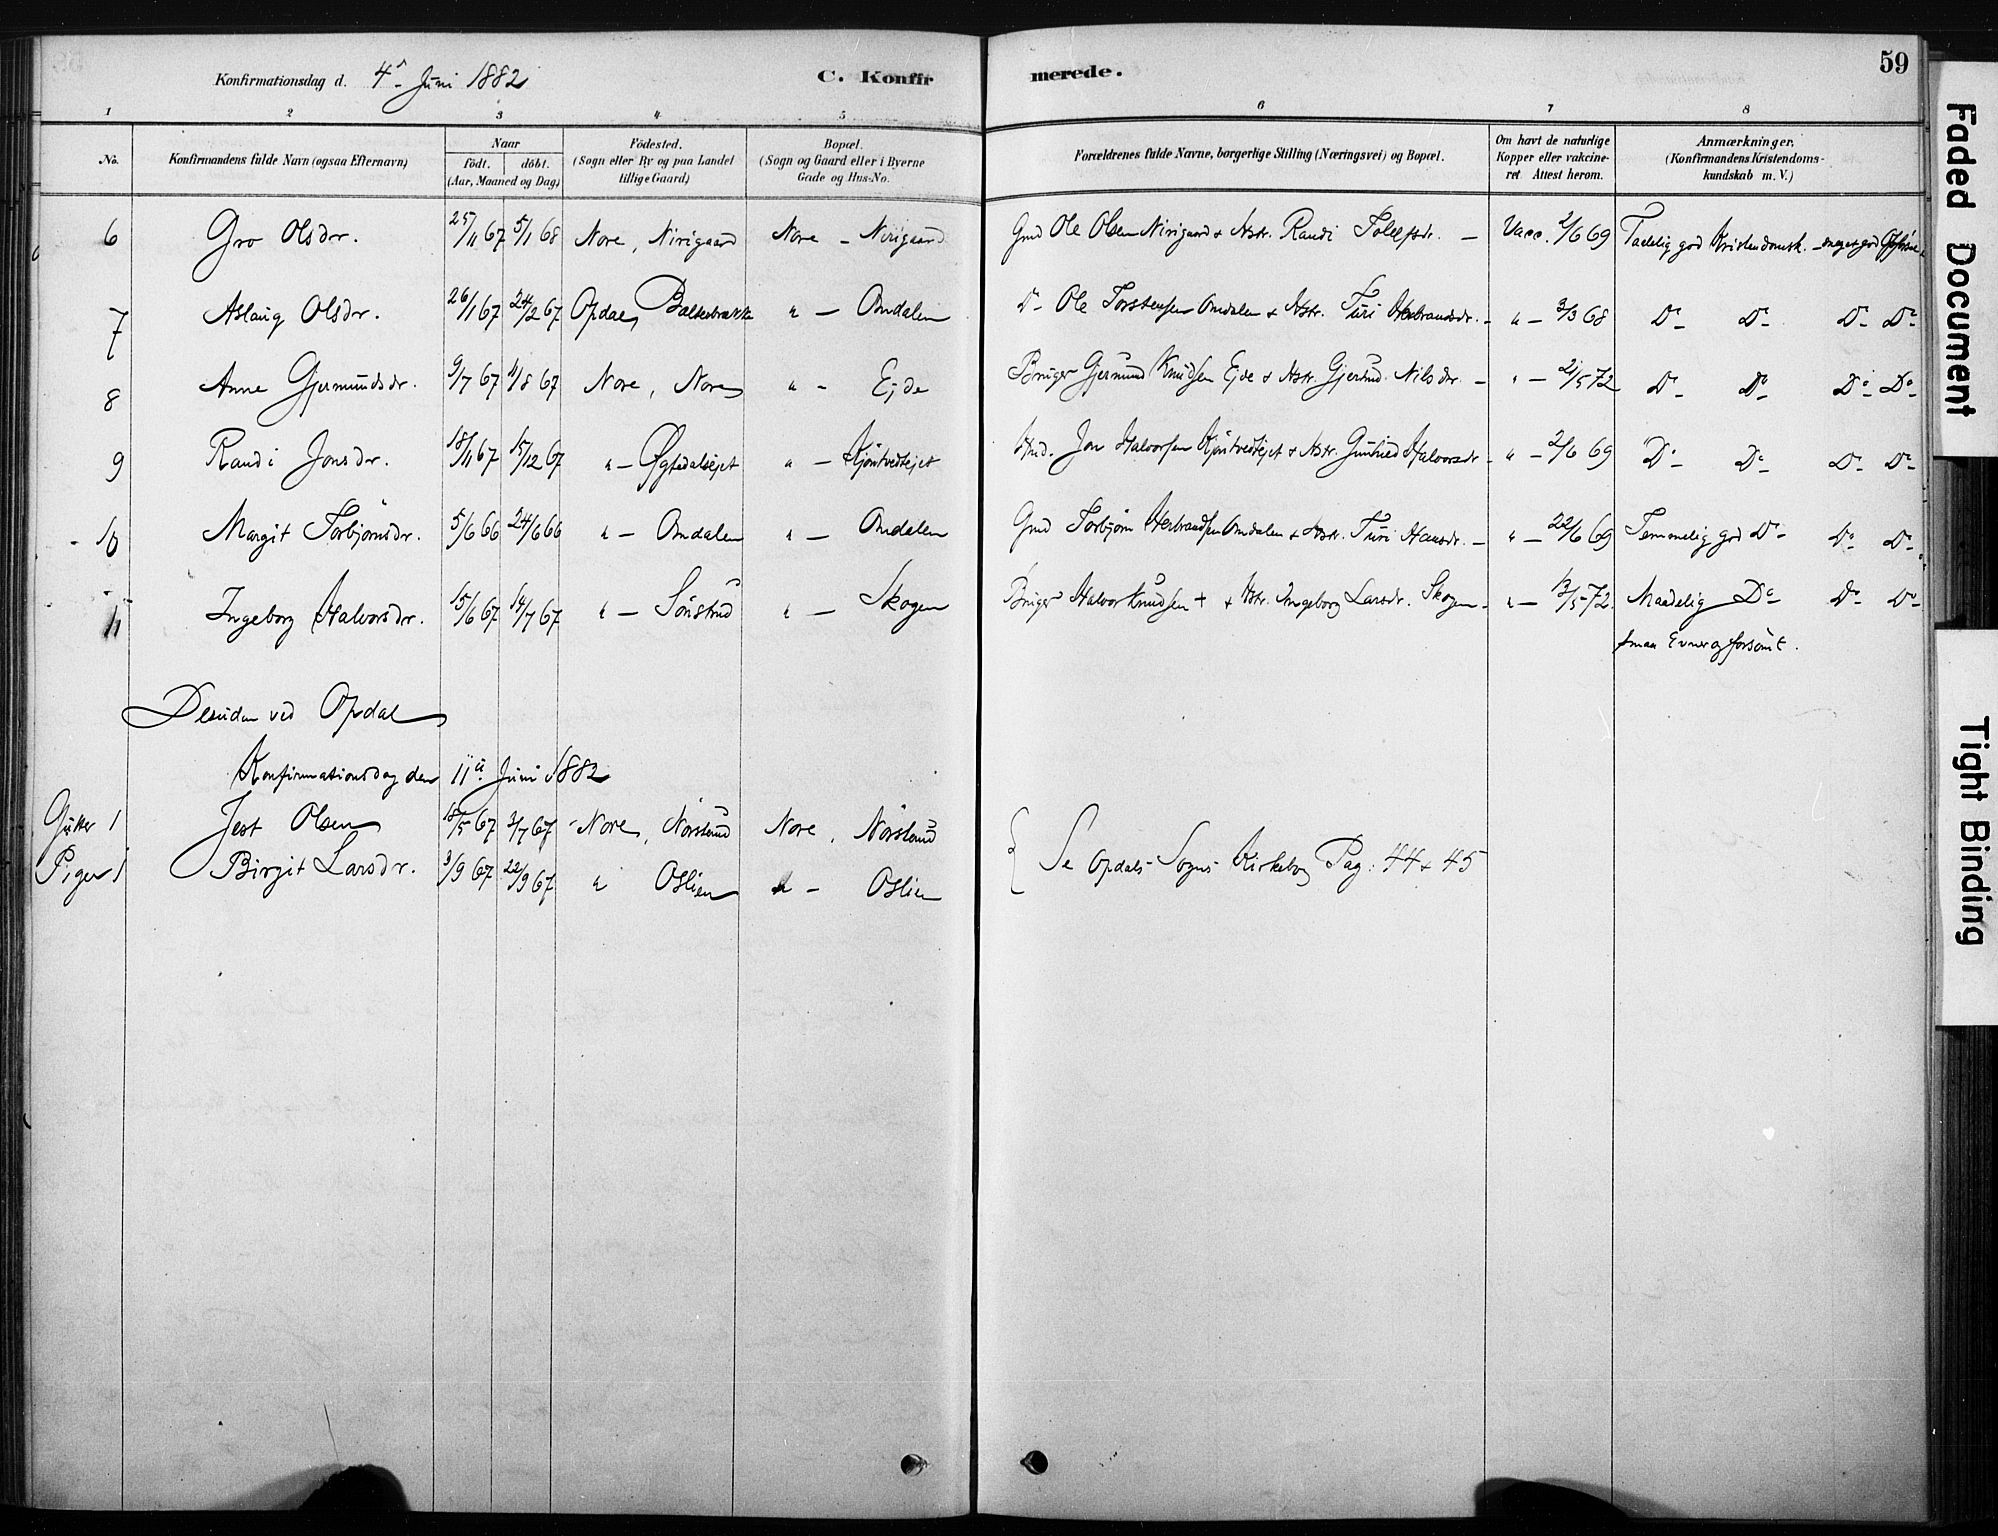 Konfirmationsdag d. 4de Juni 1882 C. Konfirmerede. 59
1 2 3 4 5 6 7 8
No. Konfirmandens fulde Navn (ogsaa Efternavn) Naar født. døbt. (Aar, Maaned og Dag) Fødested. (Sogn eller By og paa Landet tillige Gaard) Bopæl. (Sogn og Gaard eller i Byerne Gade og Hus-No. Forældrenes fulde Navne, borgerlige Stilling (Næringsvei) og Bopæl. Om havt de naturlige Kopper eller vakcineret. Attest herom. Anmærkninger. (Konfirmandens Kristendomskundskab m. V.)
6 Gro Olsdr. 25/11 67 5/1 68 Nore, Nirigaard Nore - Nirigaard Gmd Ole Olsen Nirigaard & Hstr. Randi Tolefsdr. - Vacc. 2/6 69 Tadelig god Kristendomsk. - meget god
7 Aslaug Olsdr. 26/1 67 24/2 67 Opdal, " - Omdalen Do Ole Torstensen Omdalen & Hstr. Turi Herbrandsdr. - " - 3/3 68 Do Do Do Do
8 Anne Gjermundsdr. 9/7 67 11/8 67 Nore, Nore " - Ejde Bruger Gjermund Knudsen Ejde & Hstr. Gjertrud Nilsdr. - " - 21/5 72 Do Do Do Do
9 Randi Jonsdr. 18/11 67 15/12 67 " - Øgtsdalsejet " - Kjöntvedtejet Hmd. Jon Halvorsen Kjöntvedtejet & Hstr. Gunhild Halvorsdr - " - 2/6 69 Do Do Do Do
10 Margit Torbjörnsdr. 5/6 66 24/6 66 " - Omdalen " - Omdalen Gmd Torbjörn Herbrandsen Omdalen & Hstr. Turi Hansdr. - " - 22/6 69 Temmelig god Do Do Do
11 Ingeborg Halvorsdr. 15/6 67 14/7 67 " - Sönstrud " - Skogen Bruger Halvor Knudsen + & Hstr. Ingeborg Larsdr. Skogen - " - 13/5 72. Maadelig Do Do Do
smaa Evner og forsömt.
Desuden ved Opdal
Konfirmationsdag den 11te Juni 1882
Gutter 1 Jest Olsen 18/5 67 3/7 67 Nore, Nörstrud Nore, Nörstrud
Piger 1 Birgit Larsdr. 3/9 67 22/9 67 " Oslien " - Oslien
Se Opdals Sogns Kirkebog Pag: 44 & 45
Faded Document
Tight Binding